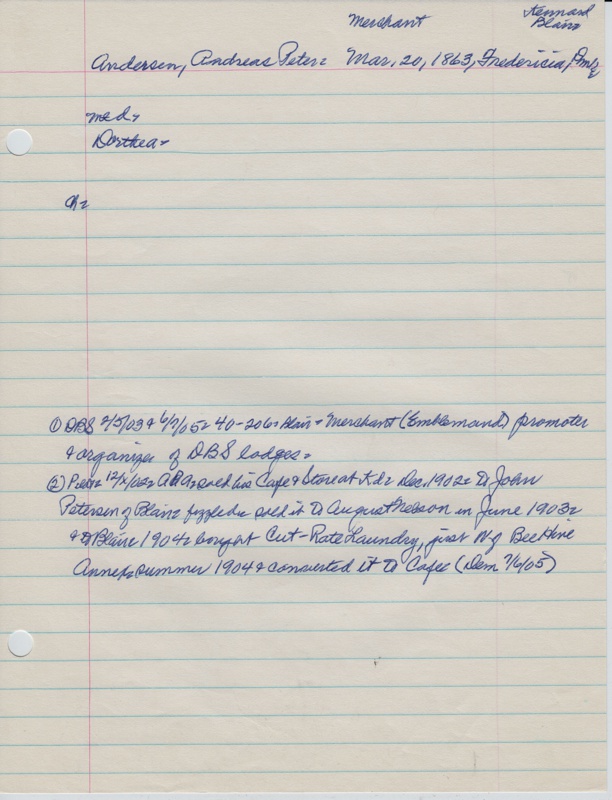 Merchant
Kennard
Blair
Andersen, Andreas Peter= Mar. 20, 1863, Fredericia, Dm/
med=
Dorthea=
Ch=
① DBS 2/5/03 & 6/7/05= 40-206= Blair= Merchant (Emblemand) promoter
& organizer of DBS lodges=
② 12/ /02= APA= sold his Cafe & Store at Kd= Dec. 1902= to John
Petersen of Blair= fizzled= sold it to August Nelson in June 1903=
& to Blair 1904= bought Cut-Rate Laundry, just N of Bee Hive
Annex= summer 1904 & converted it to Cafe (Dem 7/6/05)